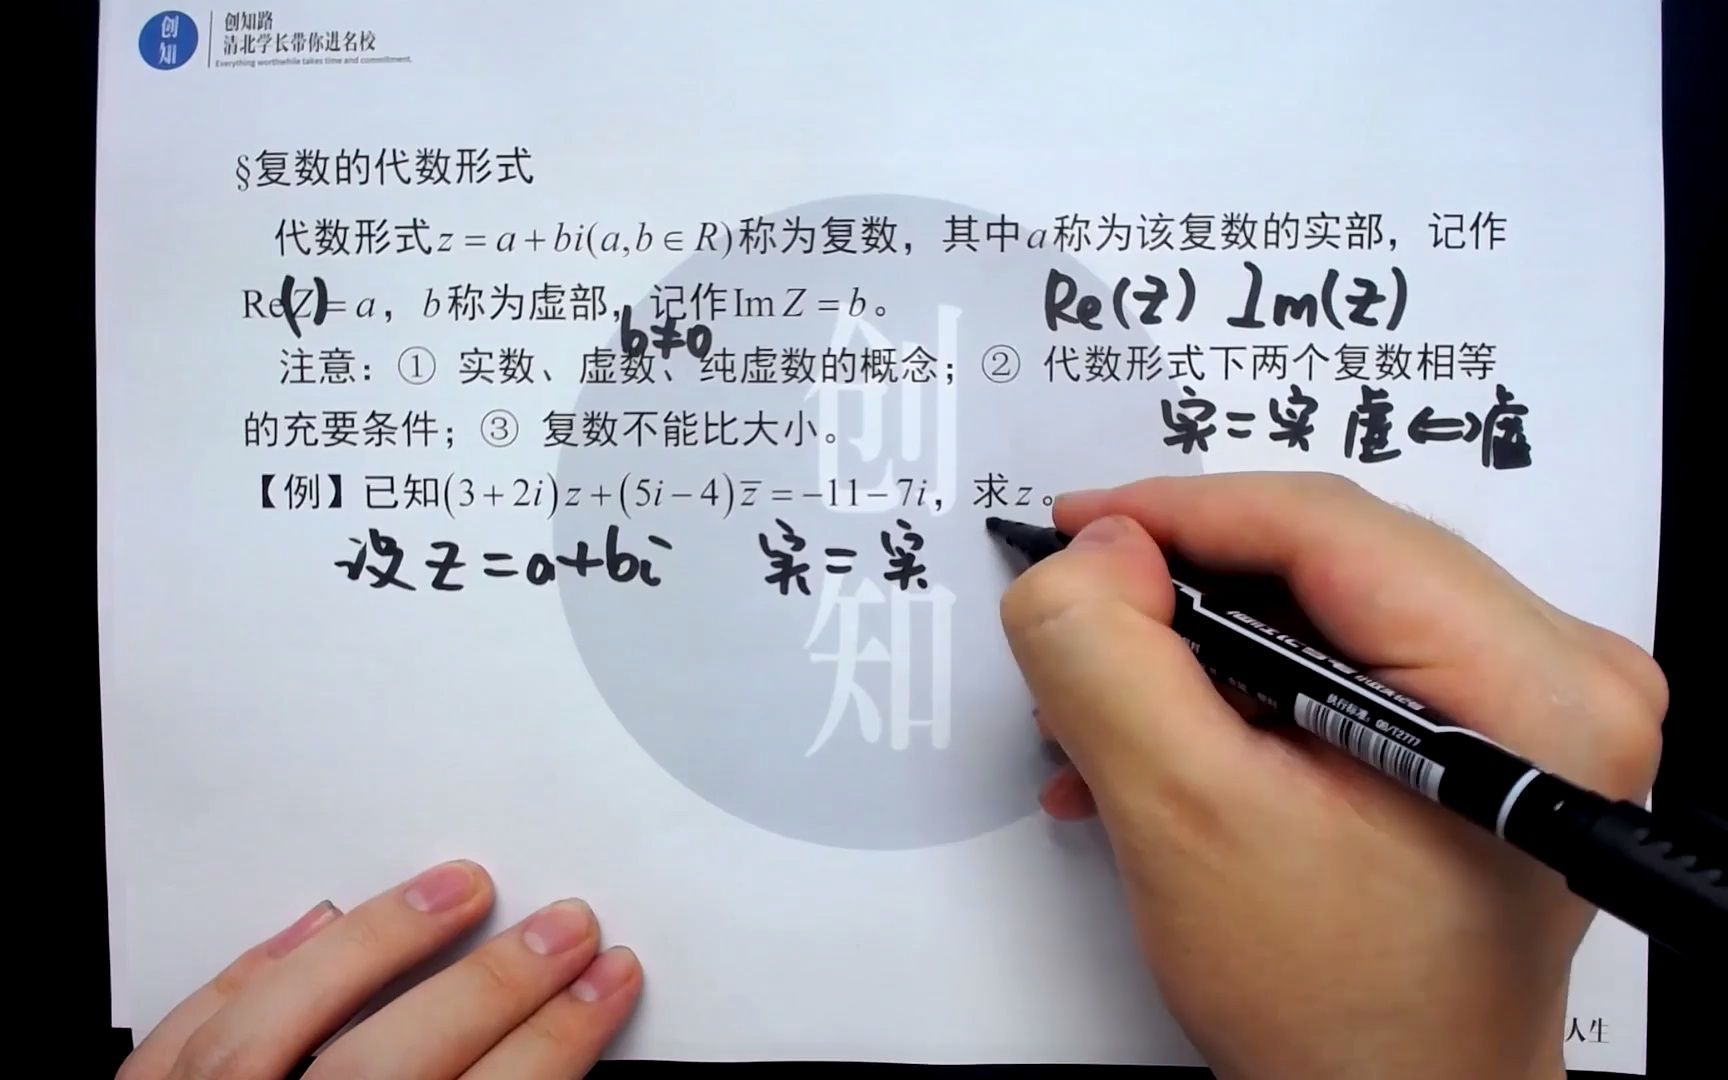 创知
创知路
清北学长带你进名校
Everything worthwhile takes time and commitment.
§复数的代数形式
代数形式z = a + bi(a,b ∈ R)称为复数，其中a称为该复数的实部，记作
Re(Z) = a，b称为虚部，记作Im Z = b。
Re(z) Im(z)
b≠0
注意：① 实数、虚数、纯虚数的概念；② 代数形式下两个复数相等
的充要条件；③ 复数不能比大小。
实=实 虚⇔虚
【例】已知(3+2i)z+(5i−4)z̅=−11−7i，求z。
设 z=a+bi 实=实
创
知
执行标准：QB/T2777
人生